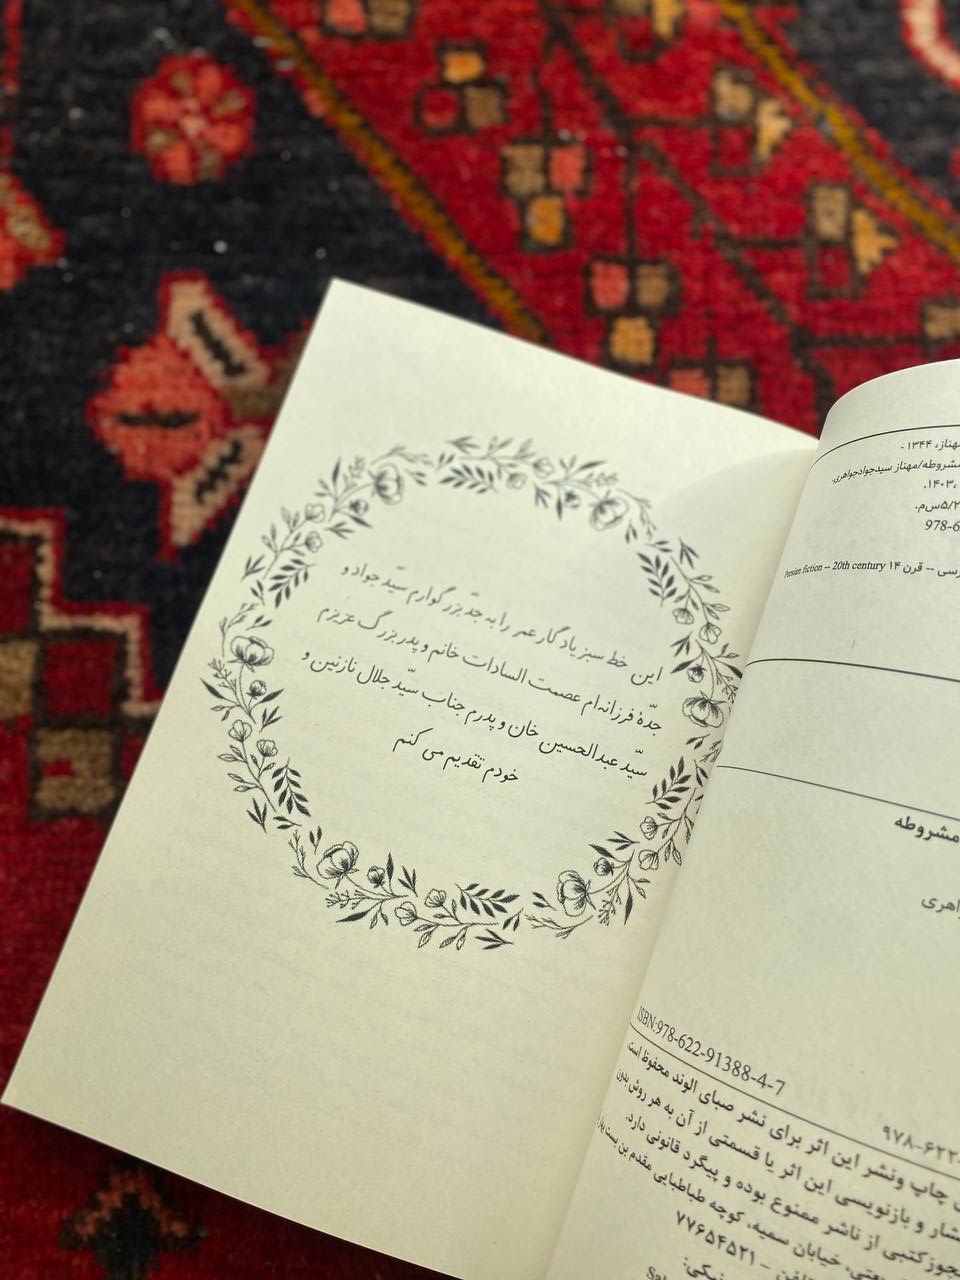 این خط سبز یادگار عمر را به جدّ بزرگوارم سیّد جواد و
جدّهٔ فرزانه‌ام عصمت السادات خانم و پدربزرگ عزیزم
سیّد عبدالحسین خان و پدرم جناب سیّد جلال نازنین و
خودم تقدیم می کنم
مهناز، ۱۳۴۴ -
مشروطه/مهناز سیدجوادجواهری.
۱۴۰۳.
۵/۲س‌م.
978-6
Persian fiction -- 20th century قرن ۱۴ --
مشروطه
ISBN:978-622-91388-4-7
۹۷۸-۶۲۲-
چاپ ونشر این اثر برای نشر صبای الوند محفوظ است.
و بازنویسی این اثر یا قسمتی از آن به هر روش بدون
کتبی از ناشر ممنوع بوده و پیگرد قانونی دارد.
خیابان سمیه، کوچه طباطبایی مقدم بن بست
- ۷۷۶۵۴۵۲۱